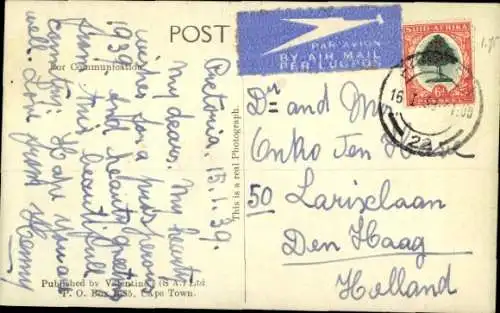 POST
For Communication
Pretoria. 15.1.39.
My dears. My hearty
wishes for a prosperous
1939 and hearty greetings
from this beautiful
country. Hope you are
well. Love from Henny
This is a real Photograph.
Published by Valentine's (S.A.) Ltd
P. O. Box 1685, Cape Town.
PAR AVION
BY AIR MAIL
PER LUGPOS
SUID-AFRIKA
6D
16
22
Dr and Mrs
Onko Ten
50 Larixlaan
Den Haag
Holland